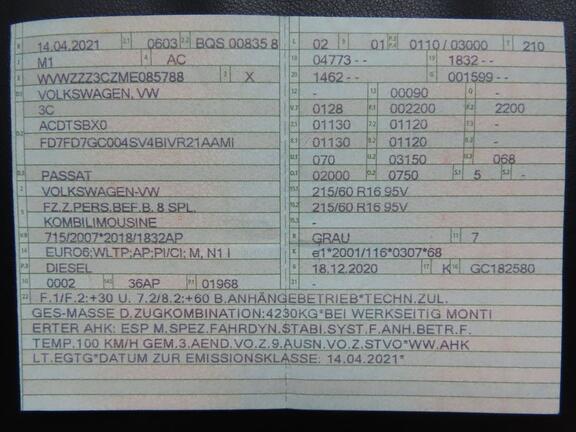 B 14.04.2021 2.1 0603 2.2 BQS 00835 8
J M1 4 AC
E WVWZZZ3CZME085788 3 X
D.1 VOLKSWAGEN, VW
3C
D.2 ACDTSBX0
FD7FD7GC004SV4BIVR21AAMI
D.3 PASSAT
2 VOLKSWAGEN-VW
5 FZ.Z.PERS.BEF.B. 8 SPL.
KOMBILIMOUSINE
V.9 715/2007*2018/1832AP
14 EURO6;WLTP;AP;PI/CI; M, N1 I
P.3 DIESEL
10 0002 14.1 36AP P.1 01968
L 02 9 01 P.2/P.4 0110 / 03000 T 210
18 04773 - - 19 1832 - -
20 1462 - - G 001599 - -
12 - 13 00090 Q -
V.7 0128 F.1 002200 F.2 2200
7.1 01130 7.2 01120 7.3 -
8.1 01130 8.2 01120 8.3 -
U.1 070 U.2 03150 U.3 068
O.1 02000 O.2 0750 S.1 5 S.2 -
15.1 215/60 R16 95V
15.2 215/60 R16 95V
15.3 -
R GRAU 11 7
K e1*2001/116*0307*68
6 18.12.2020 17 K 16 GC182580
21 -
22 F.1/F.2:+30 U. 7.2/8.2:+60 B.ANHÄNGEBETRIEB*TECHN.ZUL.
GES-MASSE D.ZUGKOMBINATION:4230KG*BEI WERKSEITIG MONTI
ERTER AHK: ESP M.SPEZ.FAHRDYN.STABI.SYST.F.ANH.BETR.F.
TEMP.100 KM/H GEM.3.AEND.VO.Z.9.AUSN.VO.Z.STVO*WW.AHK
LT.EGTG*DATUM ZUR EMISSIONSKLASSE: 14.04.2021*